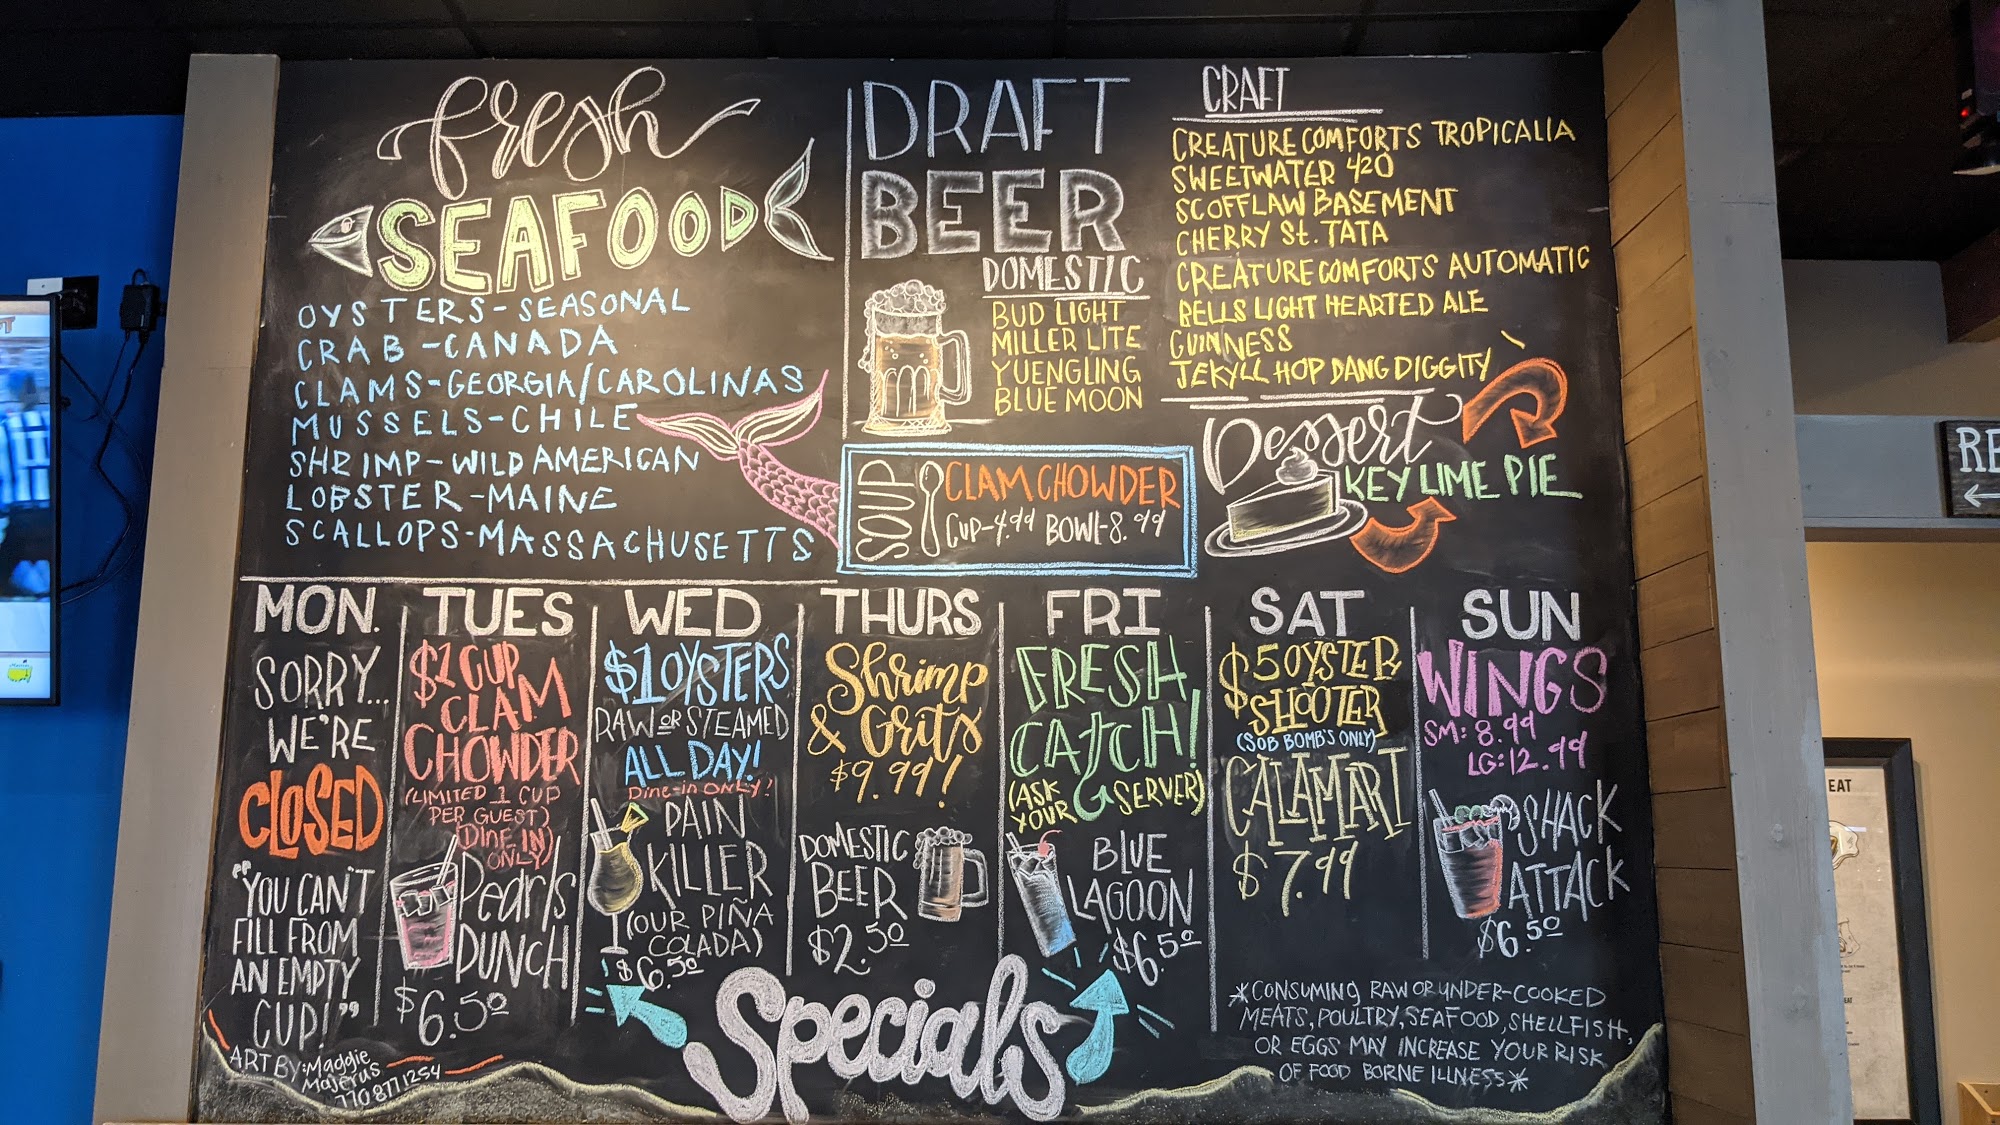 fresh
SEAFOOD
OYSTERS-SEASONAL
CRAB-CANADA
CLAMS-GEORGIA/CAROLINAS
MUSSELS-CHILE
SHRIMP-WILD AMERICAN
LOBSTER-MAINE
SCALLOPS-MASSACHUSETTS
DRAFT
BEER
DOMESTIC
BUD LIGHT
MILLER LITE
YUENGLING
BLUE MOON
CRAFT
CREATURE COMFORTS TROPICALIA
SWEETWATER 420
SCOFFLAW BASEMENT
CHERRY St. TATA
CREATURE COMFORTS AUTOMATIC
BELLS LIGHT HEARTED ALE
GUINNESS
JEKYLL HOP DANG DIGGITY
SOUP
CLAM CHOWDER
CUP-4.99 BOWL-8.99
Dessert
KEY LIME PIE
MON.
SORRY...
WE'RE
CLOSED
"YOU CAN'T
FILL FROM
AN EMPTY
CUP!"
TUES
$1 CUP
CLAM
CHOWDER
(LIMITED 1 CUP
PER GUEST)
(DINE IN
ONLY)
Pearl's
PUNCH
$6.50
WED
$1 OYSTERS
RAW OR STEAMED
ALL DAY!
Dine-in ONLY!
PAIN
KILLER
(OUR PIÑA
COLADA)
$6.50
THURS
Shrimp
& Grits
$9.99!
DOMESTIC
BEER
$2.50
FRI
FRESH
CATCH!
(ASK
YOUR SERVER)
BLUE
LAGOON
$6.50
SAT
$5 OYSTER
SHOOTER
(SOB BOMB'S ONLY)
CALAMARI
$7.99
SUN
WINGS
SM: 8.99
LG: 12.99
SHACK
ATTACK
$6.50
Specials
*CONSUMING RAW OR UNDER-COOKED
MEATS, POULTRY, SEAFOOD, SHELLFISH,
OR EGGS MAY INCREASE YOUR RISK
OF FOOD BORNE ILLNESS*
ART BY: Maggie
Majerus
770 877 1254
RE
EAT